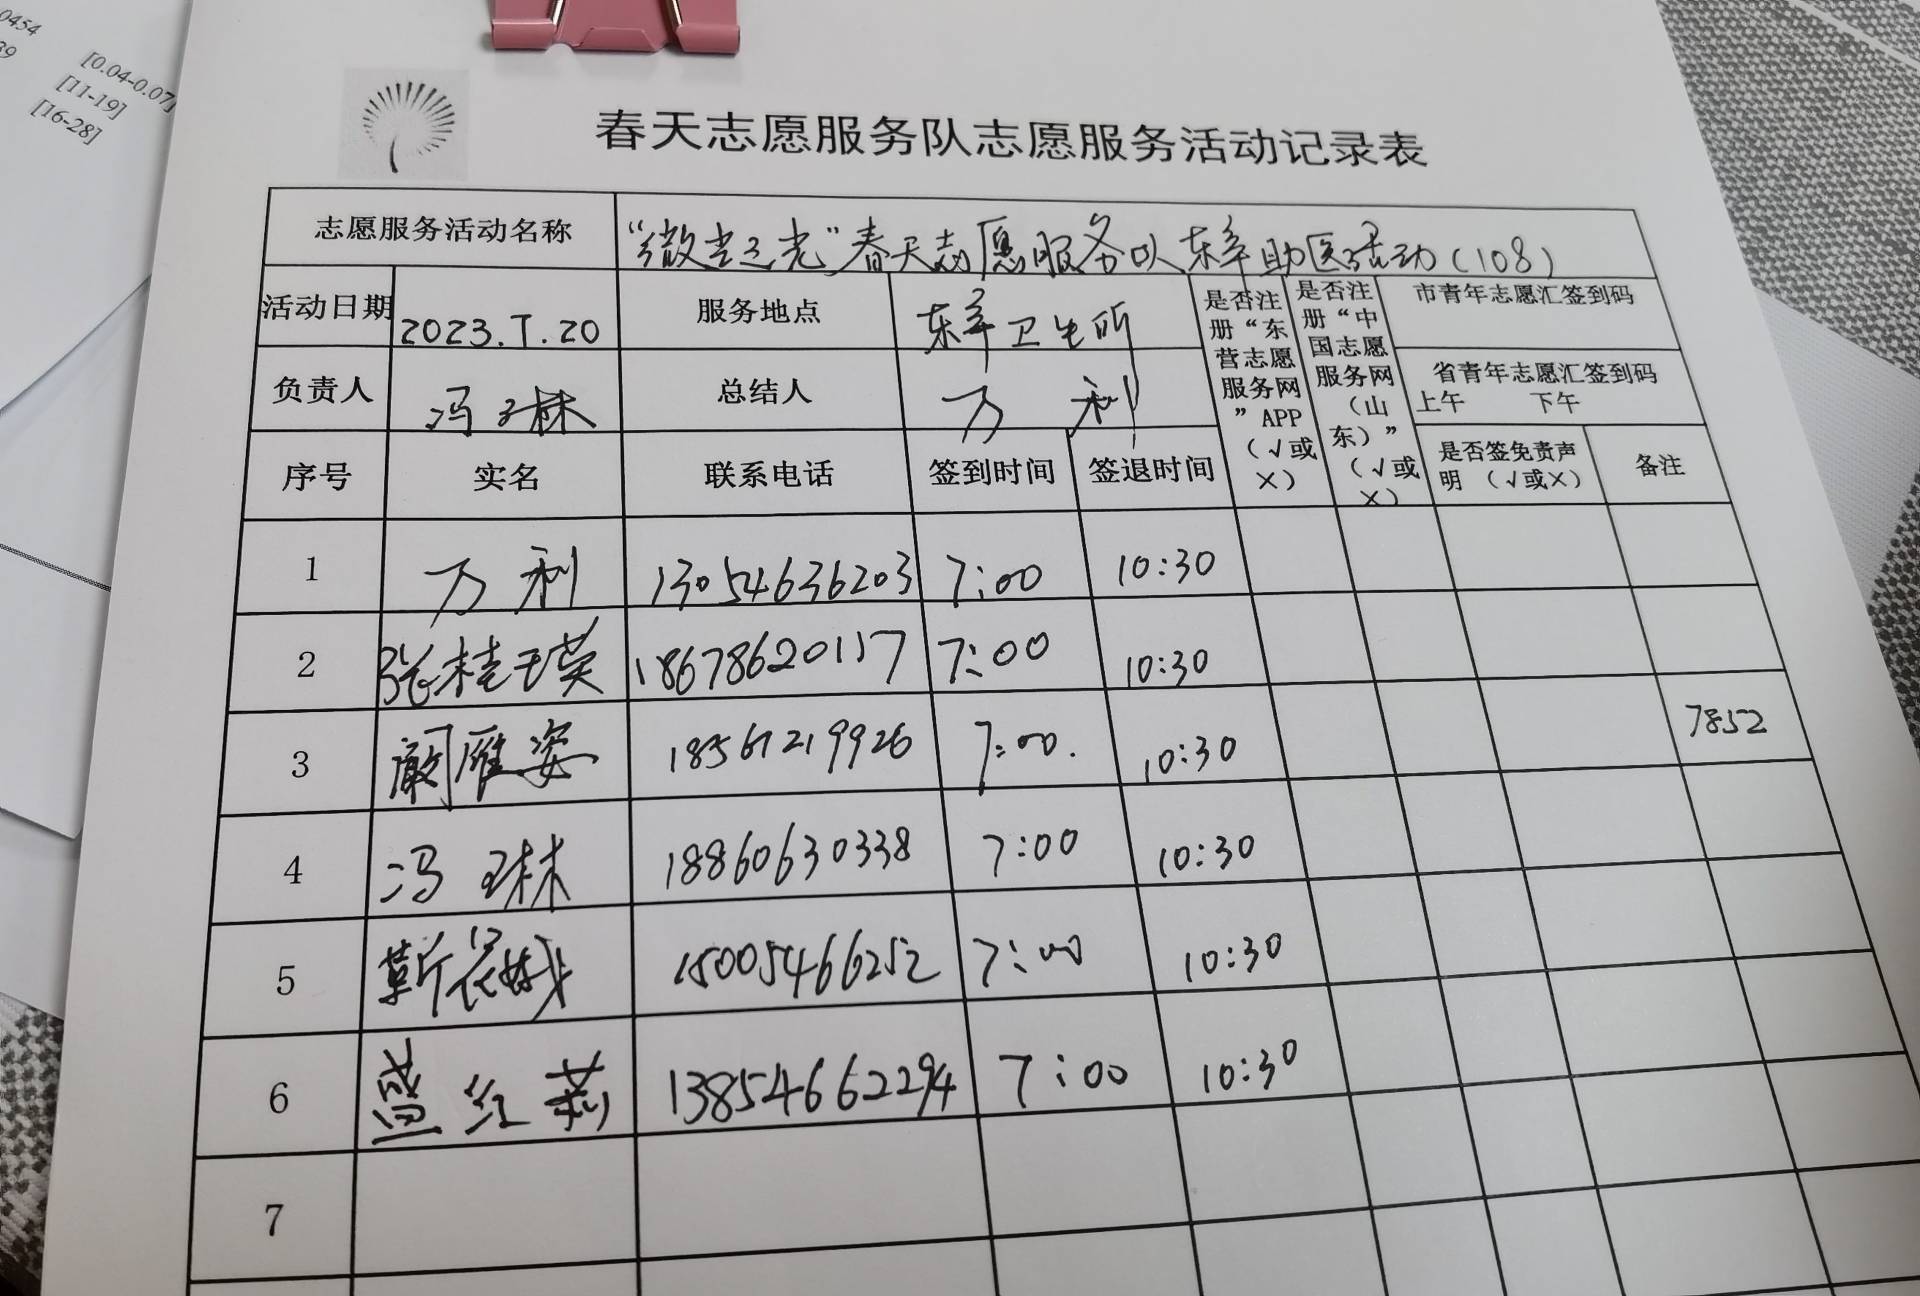 0454
39
[0.04-0.07]
[11-19]
[16-28]
春天志愿服务队志愿服务活动记录表
志愿服务活动名称 “微尘之光”春天志愿服务队东辛助医活动(108)
活动日期 2023.7.20 服务地点 东辛卫生所
负责人 冯琳 总结人 万利
是否注册“东营志愿服务网”APP（√或×）
是否注册“中国志愿服务网（山东）”（√或×）
市青年志愿汇签到码
省青年志愿汇签到码
上午 下午
序号 实名 联系电话 签到时间 签退时间 是否签免责声明（√或×） 备注
1 万利 13054636203 7:00 10:30
2 张桂瑛 18678620117 7:00 10:30
3 阚雁姿 18561219926 7:00. 10:30 7852
4 冯琳 18860630338 7:00 10:30
5 靳花娥 15005466252 7:00 10:30
6 盖红莉 13854662294 7:00 10:30
7